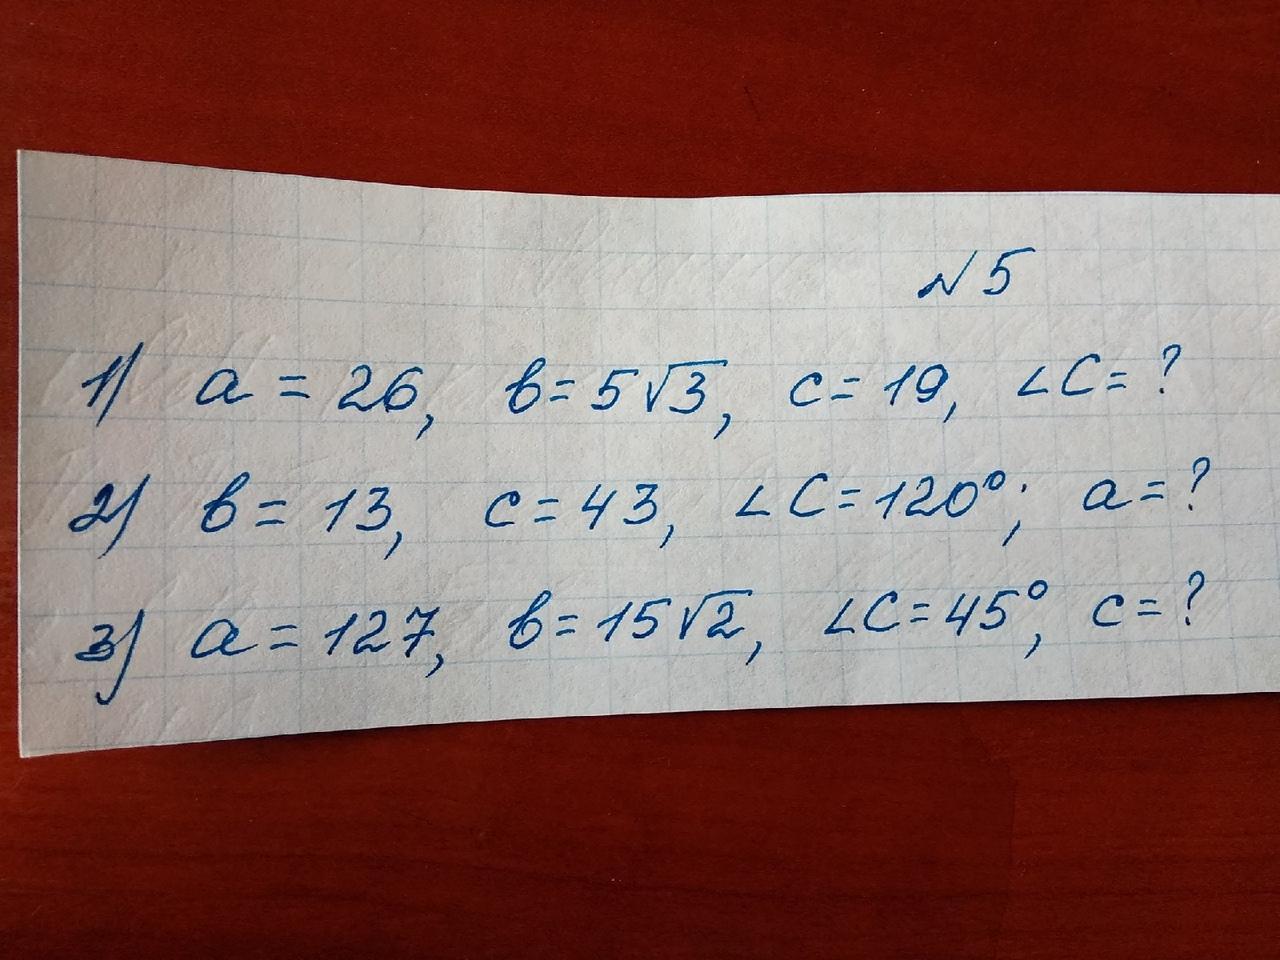 №5
1) a = 26, в = 5√3, c = 19, ∠C = ?
2) в = 13, c = 43, ∠C = 120°; a = ?
3) a = 127, в = 15√2, ∠C = 45°, c = ?